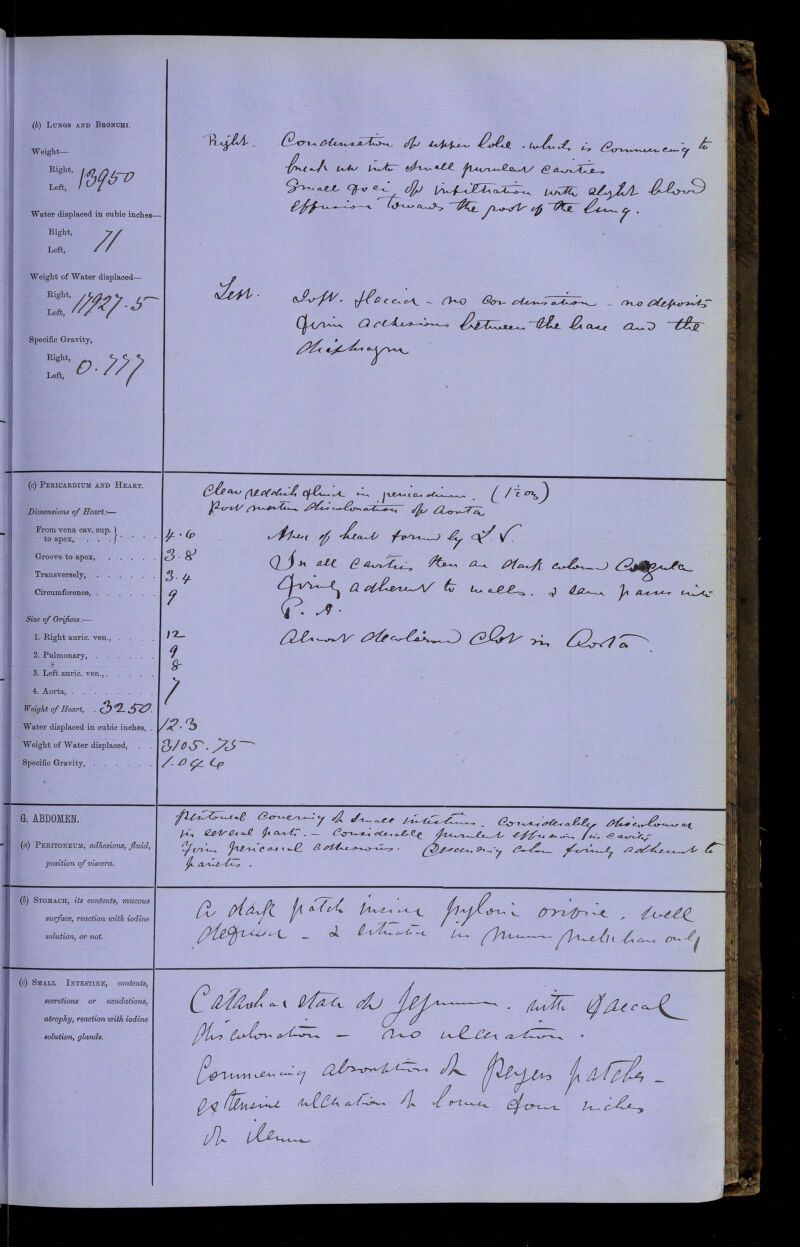 (b) LUNGS AND BRONCHI.
Weight—
Right,
Left,
13950
Water displaced in cubic inches—
Right,
Left,
71
Weight of Water displaced—
Right,
Left,
17927.5
Specific Gravity,
Right,
Left,
0.777
Right. Condensation of upper lobe. which is Commencing to
break up into small purulent cavities
Small foci of infiltration with slight blood
effusion towards the root of the lung.
Left. Soft. flaccid - no condensation - no deposits
firm adhesions between the base and the
diaphragm
(c) PERICARDIUM AND HEART.
Clear reddish fluid in pericardium. (1½ oz)
post mortem discolouration of Aorta
Dimensions of Heart:—
From vena cav. sup. to apex, 4.6
Apex of heart formed by L.V.
Groove to apex, 3.8
In all cavities there are dark coloured Coagula
Transversely, 3.4
firmly adherent to walls. & some passes into
Circumference, 9
P. A.
Almost decolorised Clot in Aorta.
Size of Orifices:—
1. Right auric. ven., 12
2. Pulmonary, 9
3. Left auric. ven., 8
4. Aorta, 7
Weight of Heart, 3250.
Water displaced in cubic inches, 12.3
Weight of Water displaced, 3105.75
Specific Gravity, 1.046
G. ABDOMEN.
(a) PERITONEUM, adhesions, fluid,
position of viscera.
Peritoneal Covering of small intestine. Considerably discoloured
in several parts. - Considerable purulent effusion in cavity
firm pericaecal adhesions. Descending Colon firmly adherent to
parietes.
(b) STOMACH, its contents, mucous
surface, reaction with iodine
solution, or not.
A dark patch inside pyloric orifice, well
defined - & situated in mucous membrane only
(c) SMALL INTESTINE, contents,
secretions or exudations,
atrophy, reaction with iodine
solution, glands.
Catarrhal state of Jejunum. with faecal
discolouration - no ulceration.
Commencing absorption of Peyers patches -
extensive ulceration of lower four inches
of ileum